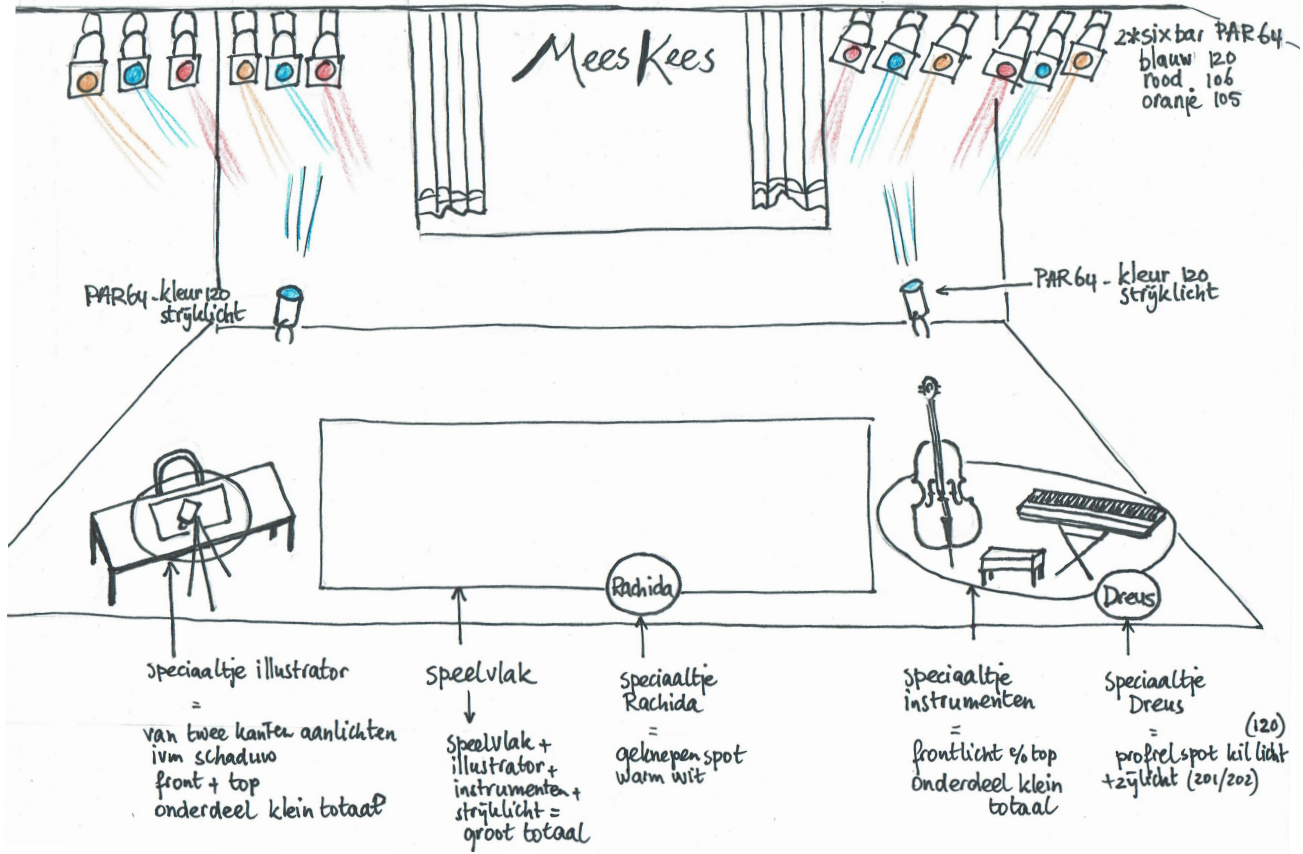 Mees Kees
2*sixbar PAR64
blauw 120
rood. 106
oranje 105
PAR64-kleur120
strijklicht
PAR64-kleur 120
strijklicht
Rachida
Dreus
speciaaltje illustrator
=
van twee kanten aanlichten
ivm schaduw
front + top
onderdeel klein totaal
speelvlak
speelvlak +
illustrator+
instrumenten+
strijklicht =
groot totaal
speciaaltje
Rachida
=
geknepen spot
warm wit
speciaaltje
instrumenten
=
frontlicht e/o top
onderdeel klein
totaal
speciaaltje
Dreus
=
(120)
profielspot kil licht
+zijlicht (201/202)